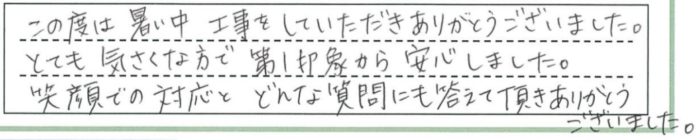 この度は暑い中 工事をしていただきありがとうございました。
とても気さくな方で 第1印象から 安心しました。
笑顔での対応と どんな質問にも答えて頂きありがとう
ございました。